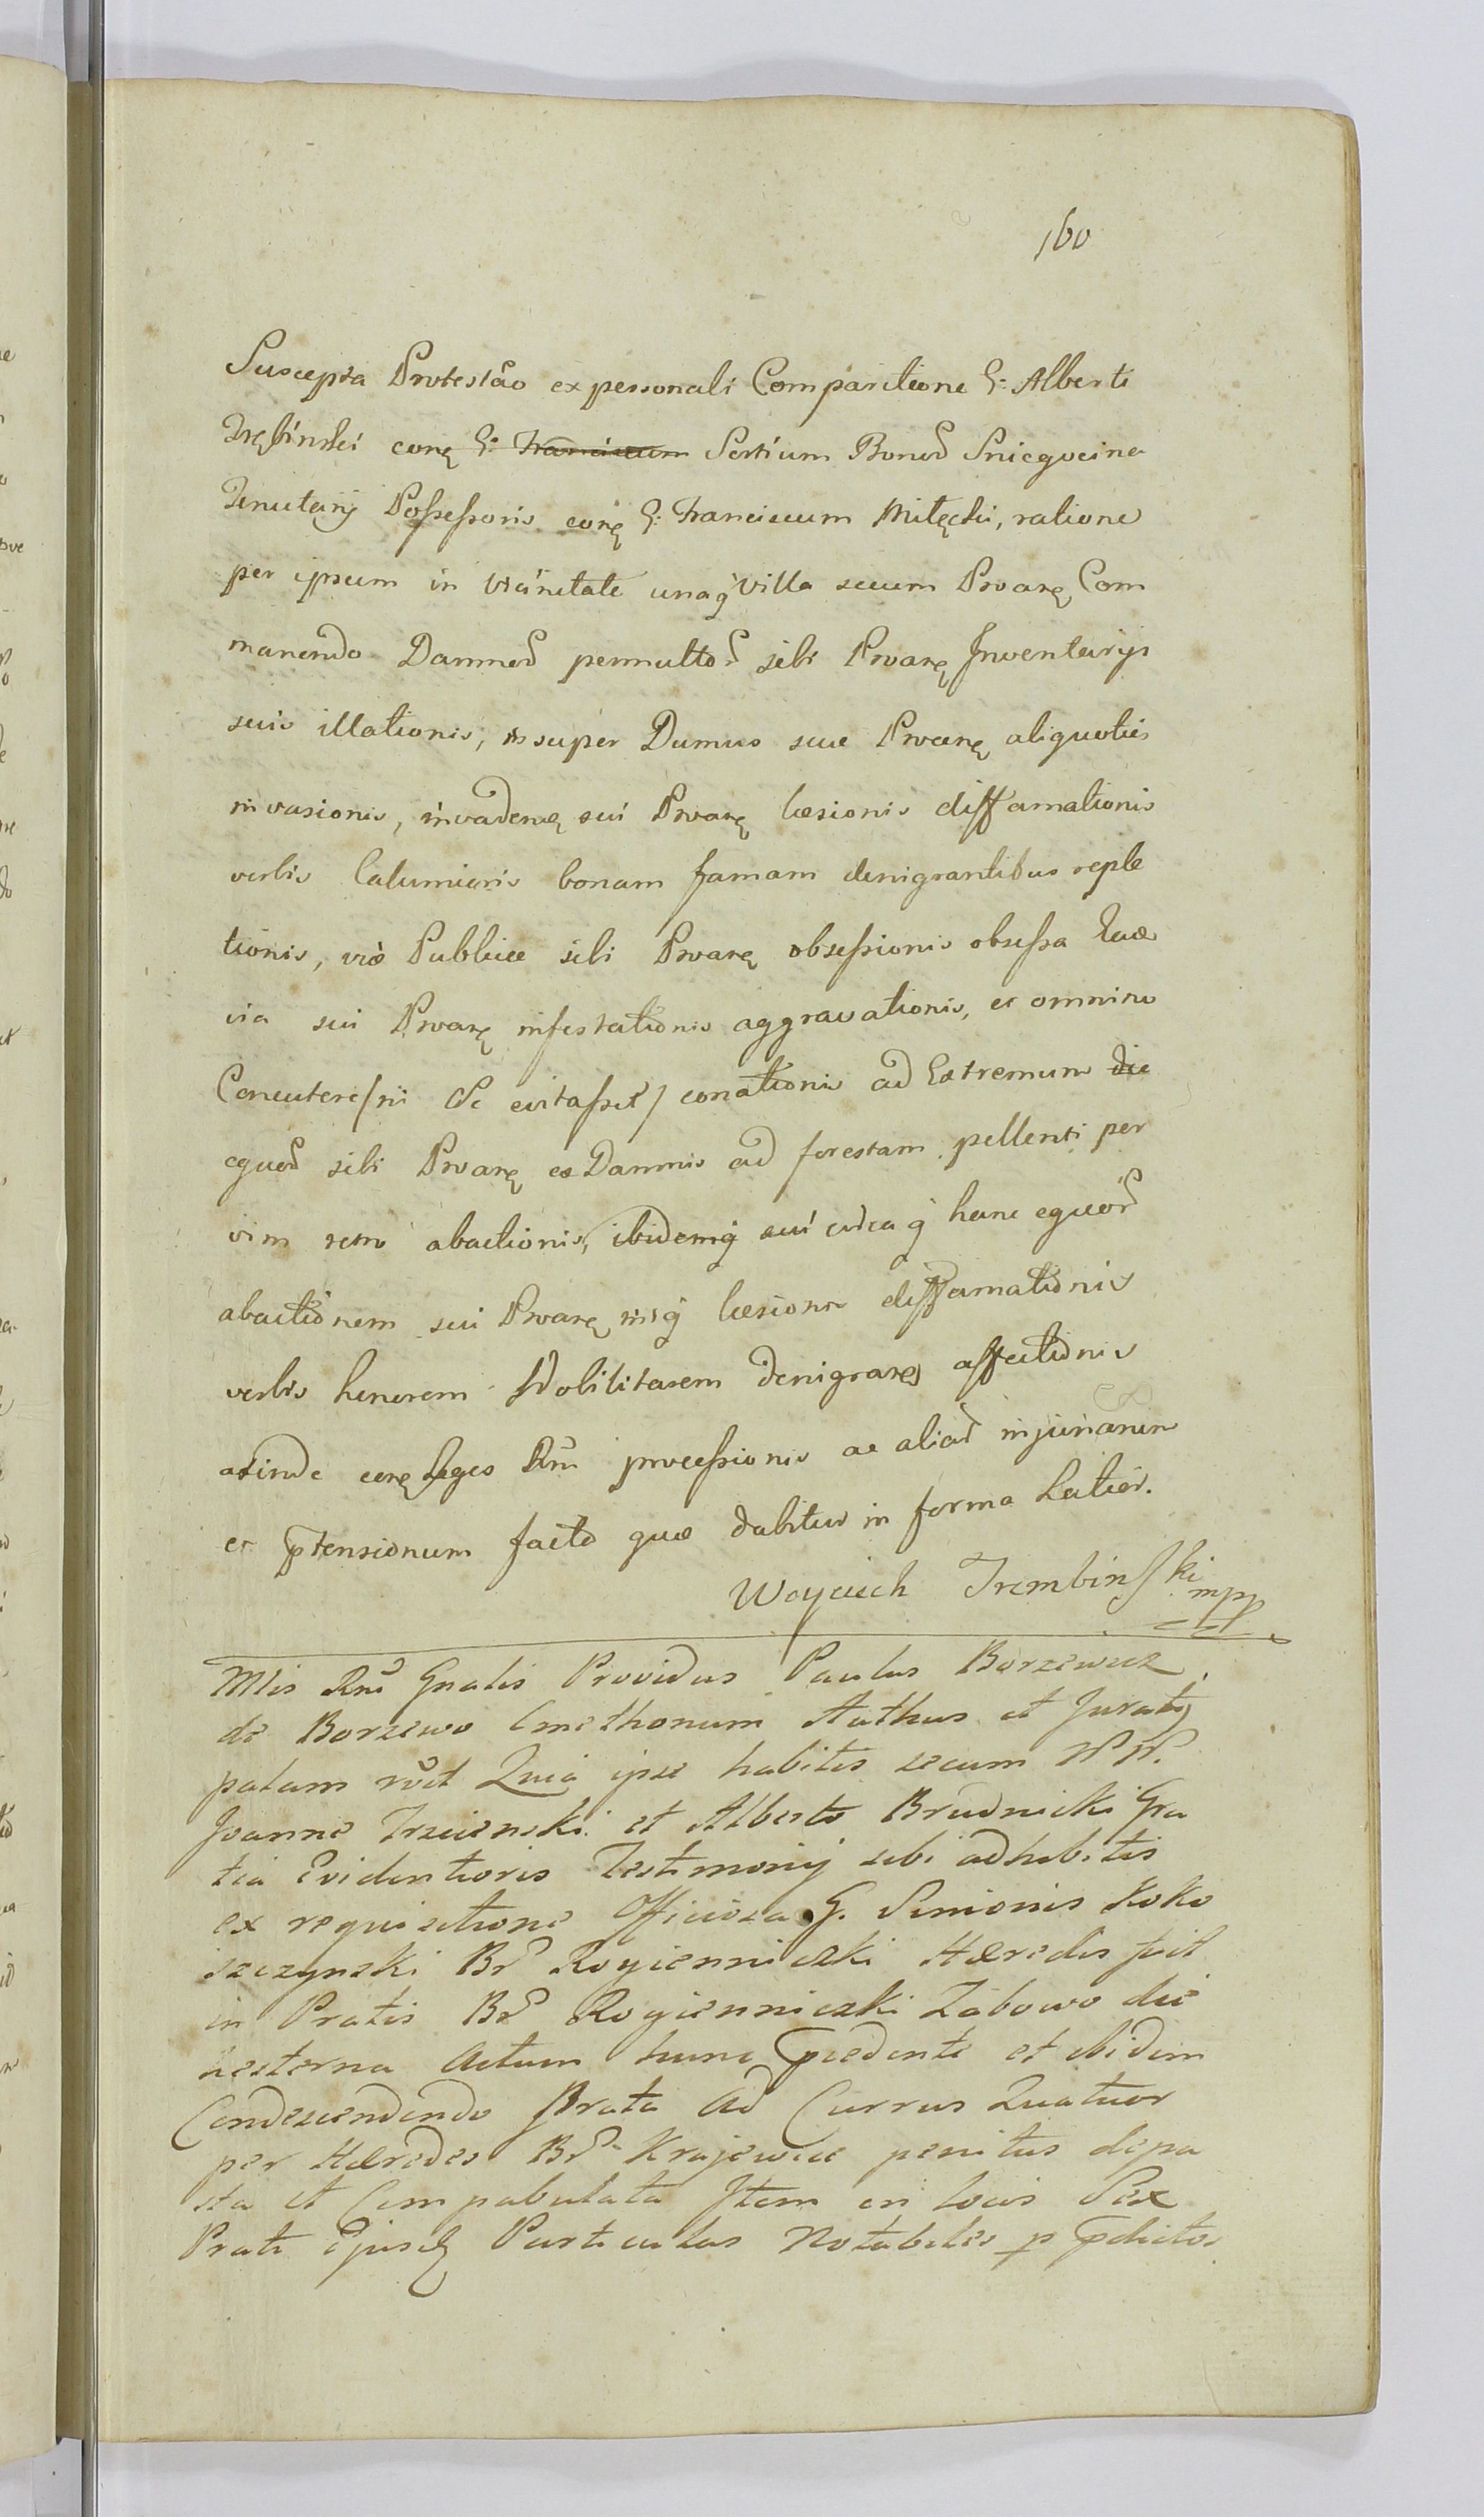 160
Suscepta Protestão ex personali Comparitione G: Alberti
Trębinski conę G: Franciscum Sortium Bonoꝝ Sniegocina
Tenutarij Possessoris conę G: Franciscum Milęcki, ratione
per ipsum in vicinitate unaq Villa secum Proarę Com
manendo Damnoꝝ permultoꝝ sibi Proarę Inventarijs
suis illationis, insuper Domus suæ Proarę aliquoties
invasionis, invadenę sui Proarę læsionis diffamationis
verbis Calumioris bonam famam denigrantibus reple
tionis, viæ Publicæ sibi Proarę obsessionis obsessa
via sui Proarę infestationis aggravationis, et omnino
Concutere /ni se evitasset/ conationis ad Extremum die
equoꝝ sibi Proarę ex Damnis ad forestam pellenti per
vim retro abactionis, ibidemq sui circa q hanc equoꝝ
abactionem sui Proarę læsionis diffamationis
verbis honorem Nobilitarem denigrares affectionis
abinde conę Leges Rni processionis ac aliaꝝ injuriarum
et ptensionum facta quæ dabitur in forma Latiori.
Woyciech Trembinski mpp
Mlis Rni Gnalis Providus Paulus Borzewicz
de Borzewo Cmethonum Authus et Juratq
palam rect Quia ipse habitis secum NN.
Joanne Trzcienski et Alberto Brudnicki Gra
tia Evidentioris Testimonij sibi adhibitis
ex requisitione Officiosa G. Simonis Koko
szczynski Br Rogienniczki Hæredis fuit
in Pratis Br Rogienniczki Zabowo die
hesterna Actum hunc Prædente et ibidem
Condescendendo Prata ad Currus Quatuor
per Hæredes Br Krajewice penitus depa
sta et Compabulata Item in locis Sex
Prati Ejusq Particulas Notabiles p Pdictos